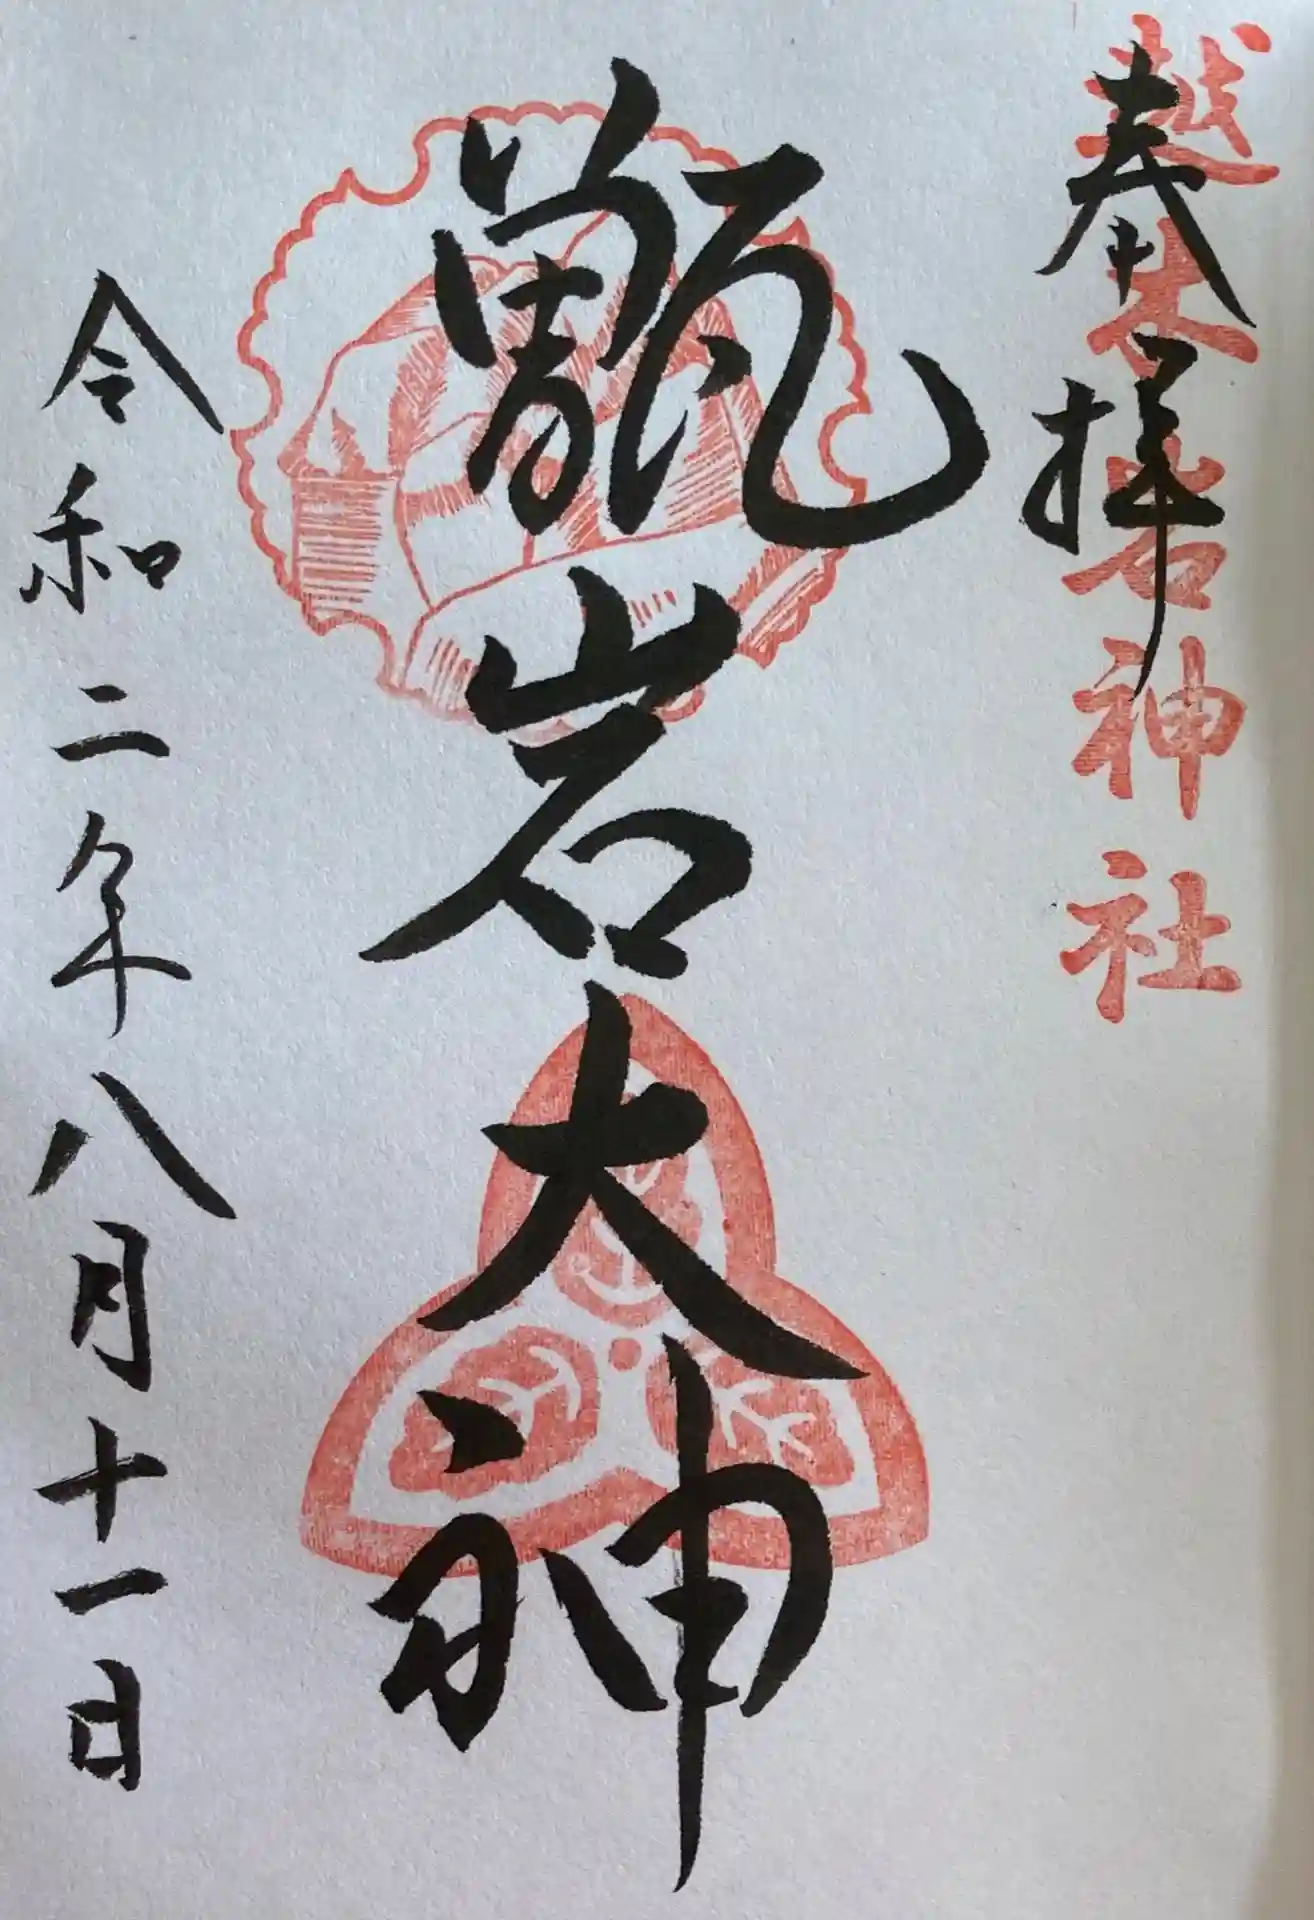 奉拝
越木岩神社
甑岩大神
令和二年八月十一日